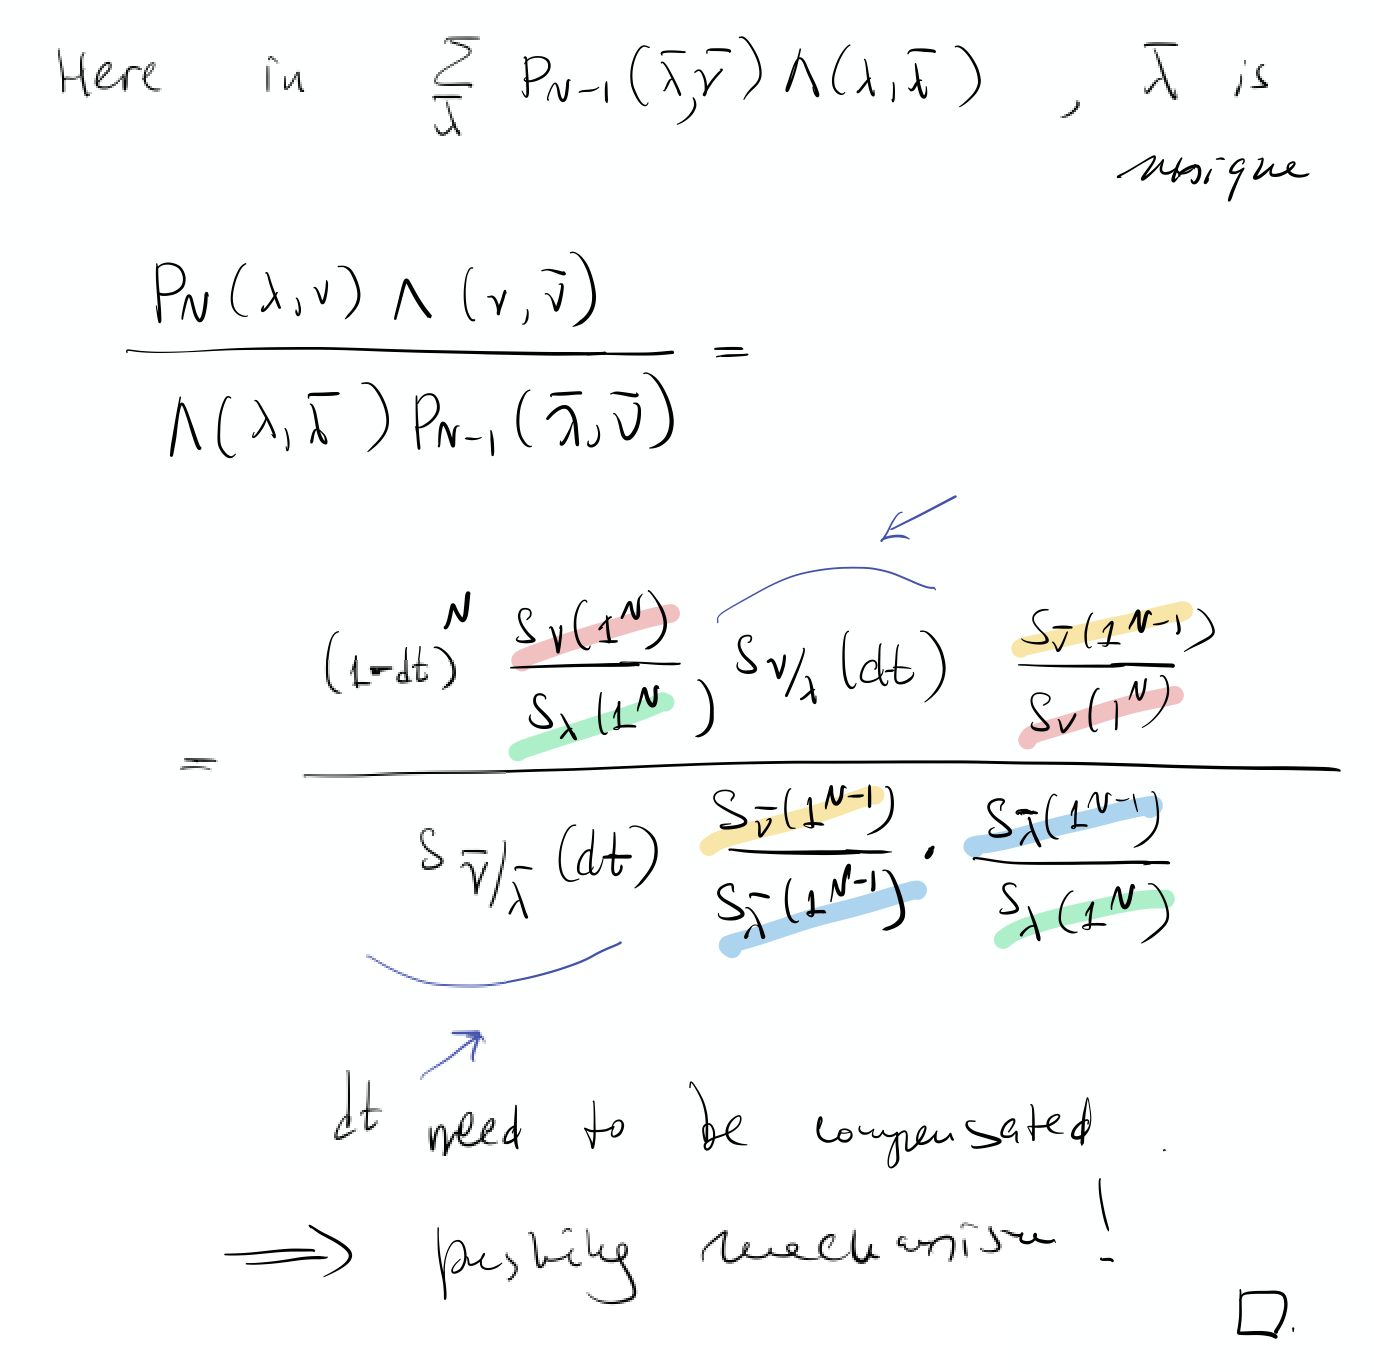 Here in $\sum_{\bar{\lambda}} P_{N-1}(\bar{\lambda}, \bar{\nu}) \Lambda(\lambda, \bar{\lambda})$ , $\bar{\lambda}$ is
unique
$\frac{P_N(\lambda, \nu) \Lambda(\nu, \bar{\nu})}{\Lambda(\lambda, \bar{\lambda}) P_{N-1}(\bar{\lambda}, \bar{\nu})} =$
$= \frac{(1-dt)^N \frac{S_\nu(1^N)}{S_\lambda(1^N)} S_{\nu/\lambda}(dt) \frac{S_{\bar{\nu}}(1^{N-1})}{S_\nu(1^N)}}{S_{\bar{\nu}/\bar{\lambda}}(dt) \frac{S_{\bar{\nu}}(1^{N-1})}{S_{\bar{\lambda}}(1^{N-1})} \cdot \frac{S_{\bar{\lambda}}(1^{N-1})}{S_\lambda(1^N)}}$
dt need to be compensated.
⟹ pushing mechanism!
□.